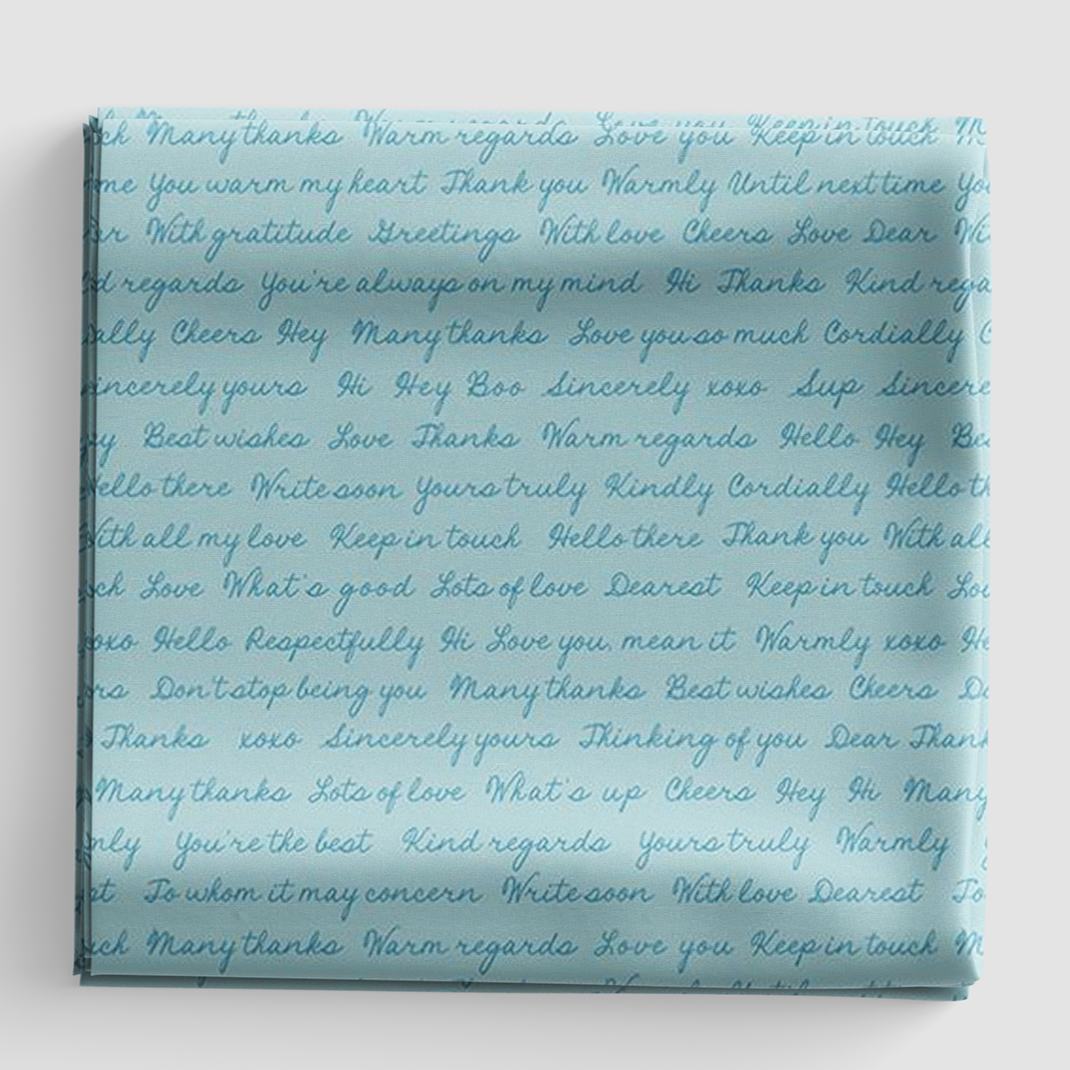 ch Many thanks Warm regards Love you Keep in touch M
me You warm my heart Thank you Warmly Until next time You
ar With gratitude Greetings With love Cheers Love Dear Wi
d regards You're always on my mind Hi Thanks Kind rega
ially Cheers Hey Many thanks Love you so much Cordially C
incerely yours Hi Hey Boo Sincerely xoxo Sup Sincere
ey Best wishes Love Thanks Warm regards Hello Hey Bes
Hello there Write soon Yours truly Kindly Cordially Hello th
With all my love Keep in touch Hello there Thank you With all
ch Love What's good Lots of love Dearest Keep in touch Lov
xoxo Hello Respectfully Hi Love you, mean it Warmly xoxo He
rs Don't stop being you Many thanks Best wishes Cheers Do
Thanks xoxo Sincerely yours Thinking of you Dear Thank
Many thanks Lots of love What's up Cheers Hey Hi Many
mly You're the best Kind regards Yours truly Warmly
st To whom it may concern Write soon With love Dearest To
uch Many thanks Warm regards Love you Keep in touch M